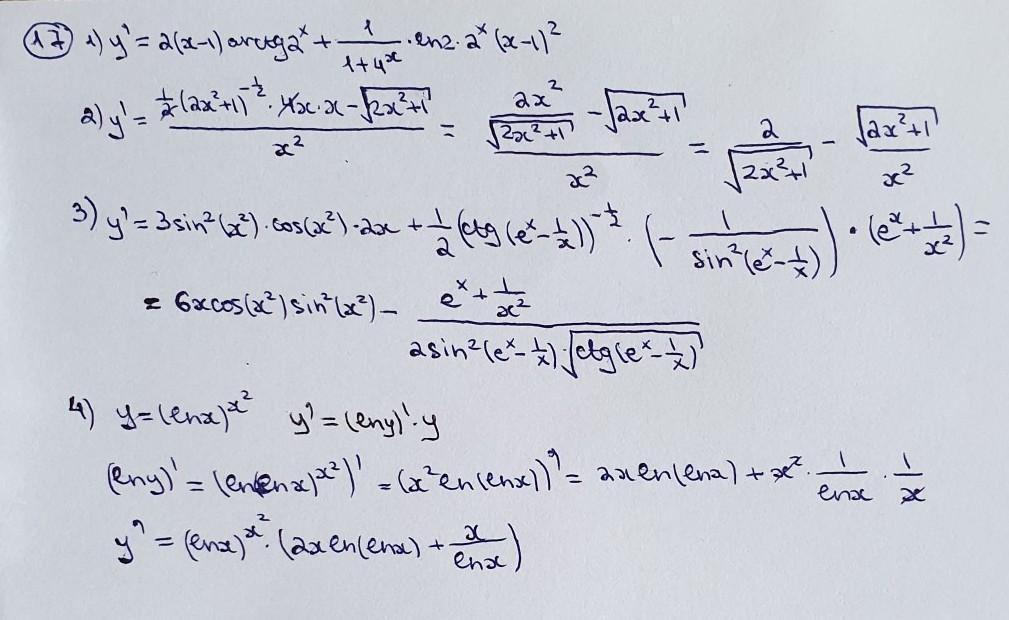 17 1) y' = 2(x-1) arctg2^x + 1/(1+4^x) · ln2 · 2^x (x-1)^2
2) y' = (1/2 (2x^2+1)^(-1/2) · 4x · x - √(2x^2+1))/x^2 = (2x^2/√(2x^2+1) - √(2x^2+1))/x^2 = 2/√(2x^2+1) - √(2x^2+1)/x^2
3) y' = 3sin^2(x^2) · cos(x^2) · 2x + 1/2 (ctg(e^x - 1/x))^(-1/2) · (- 1/sin^2(e^x - 1/x)) · (e^x + 1/x^2) =
= 6xcos(x^2)sin^2(x^2) - (e^x + 1/x^2)/(2sin^2(e^x - 1/x) · √(ctg(e^x - 1/x)))
4) y = (lnx)^(x^2) y' = (lny)' · y
(lny)' = (ln(lnx)^(x^2))' = (x^2 ln(lnx))' = 2xln(lnx) + x^2 · 1/lnx · 1/x
y' = (lnx)^(x^2) · (2xln(lnx) + x/lnx)